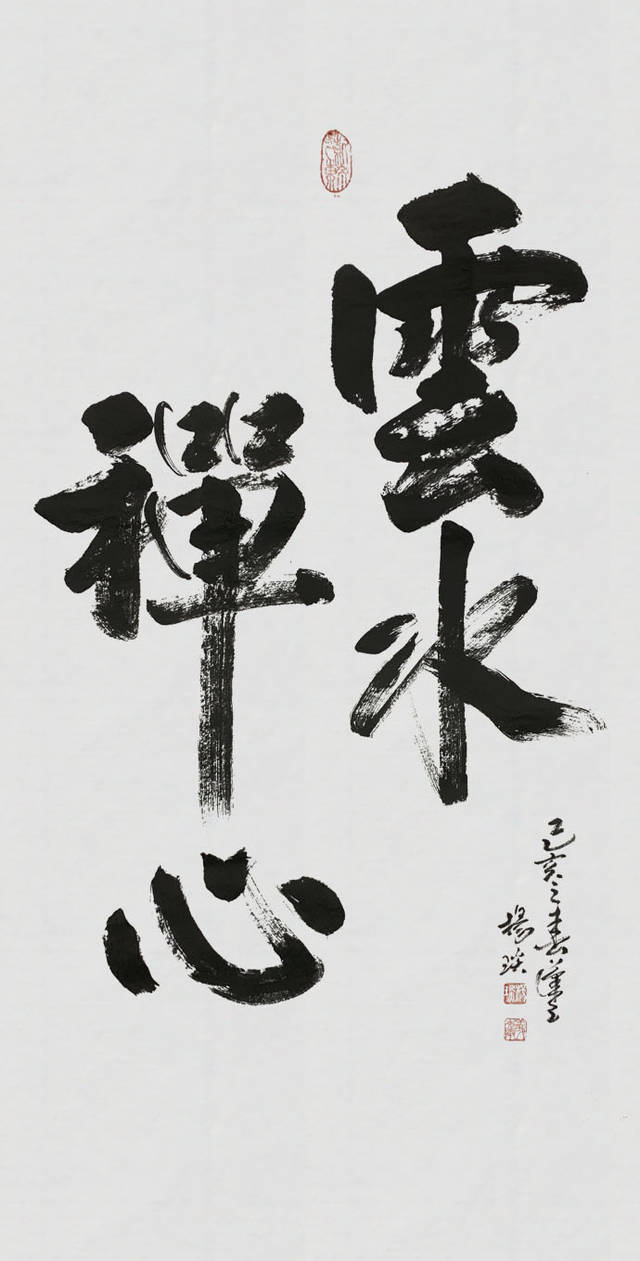 雲水
禪心
己亥之春漢上
楊琰